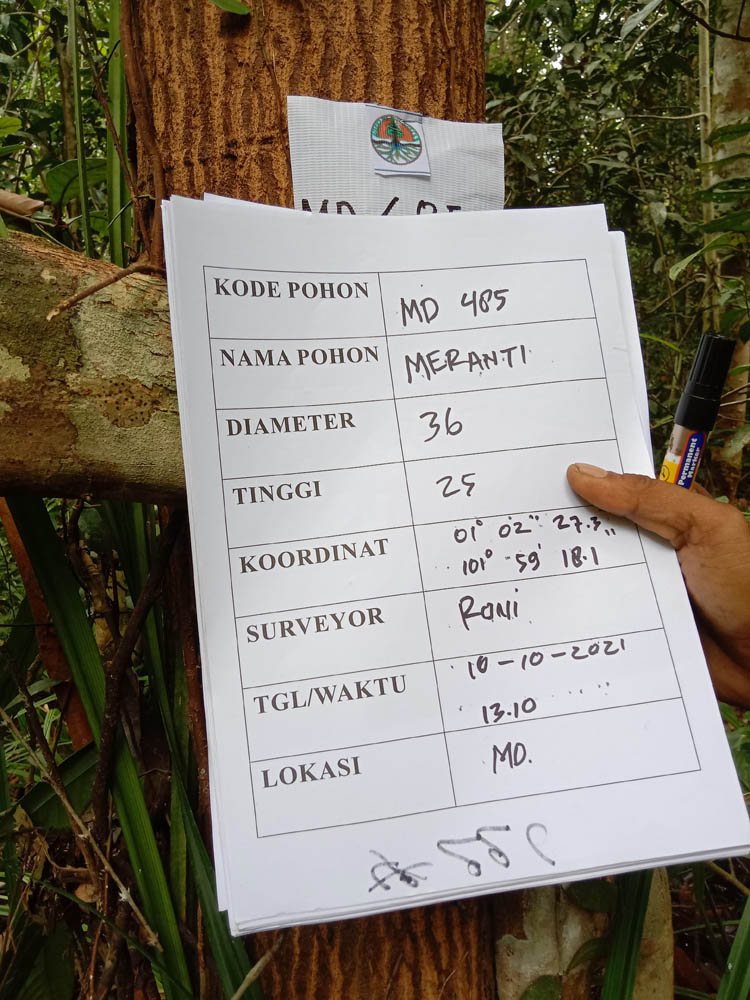 KODE POHON MD 485
NAMA POHON MERANTI
DIAMETER 36
TINGGI 25
KOORDINAT 01° 02" 27.3"
101° 59' 18.1
SURVEYOR RONI
TGL/WAKTU 10-10-2021
13.10
LOKASI MD.
Permanent
Marker